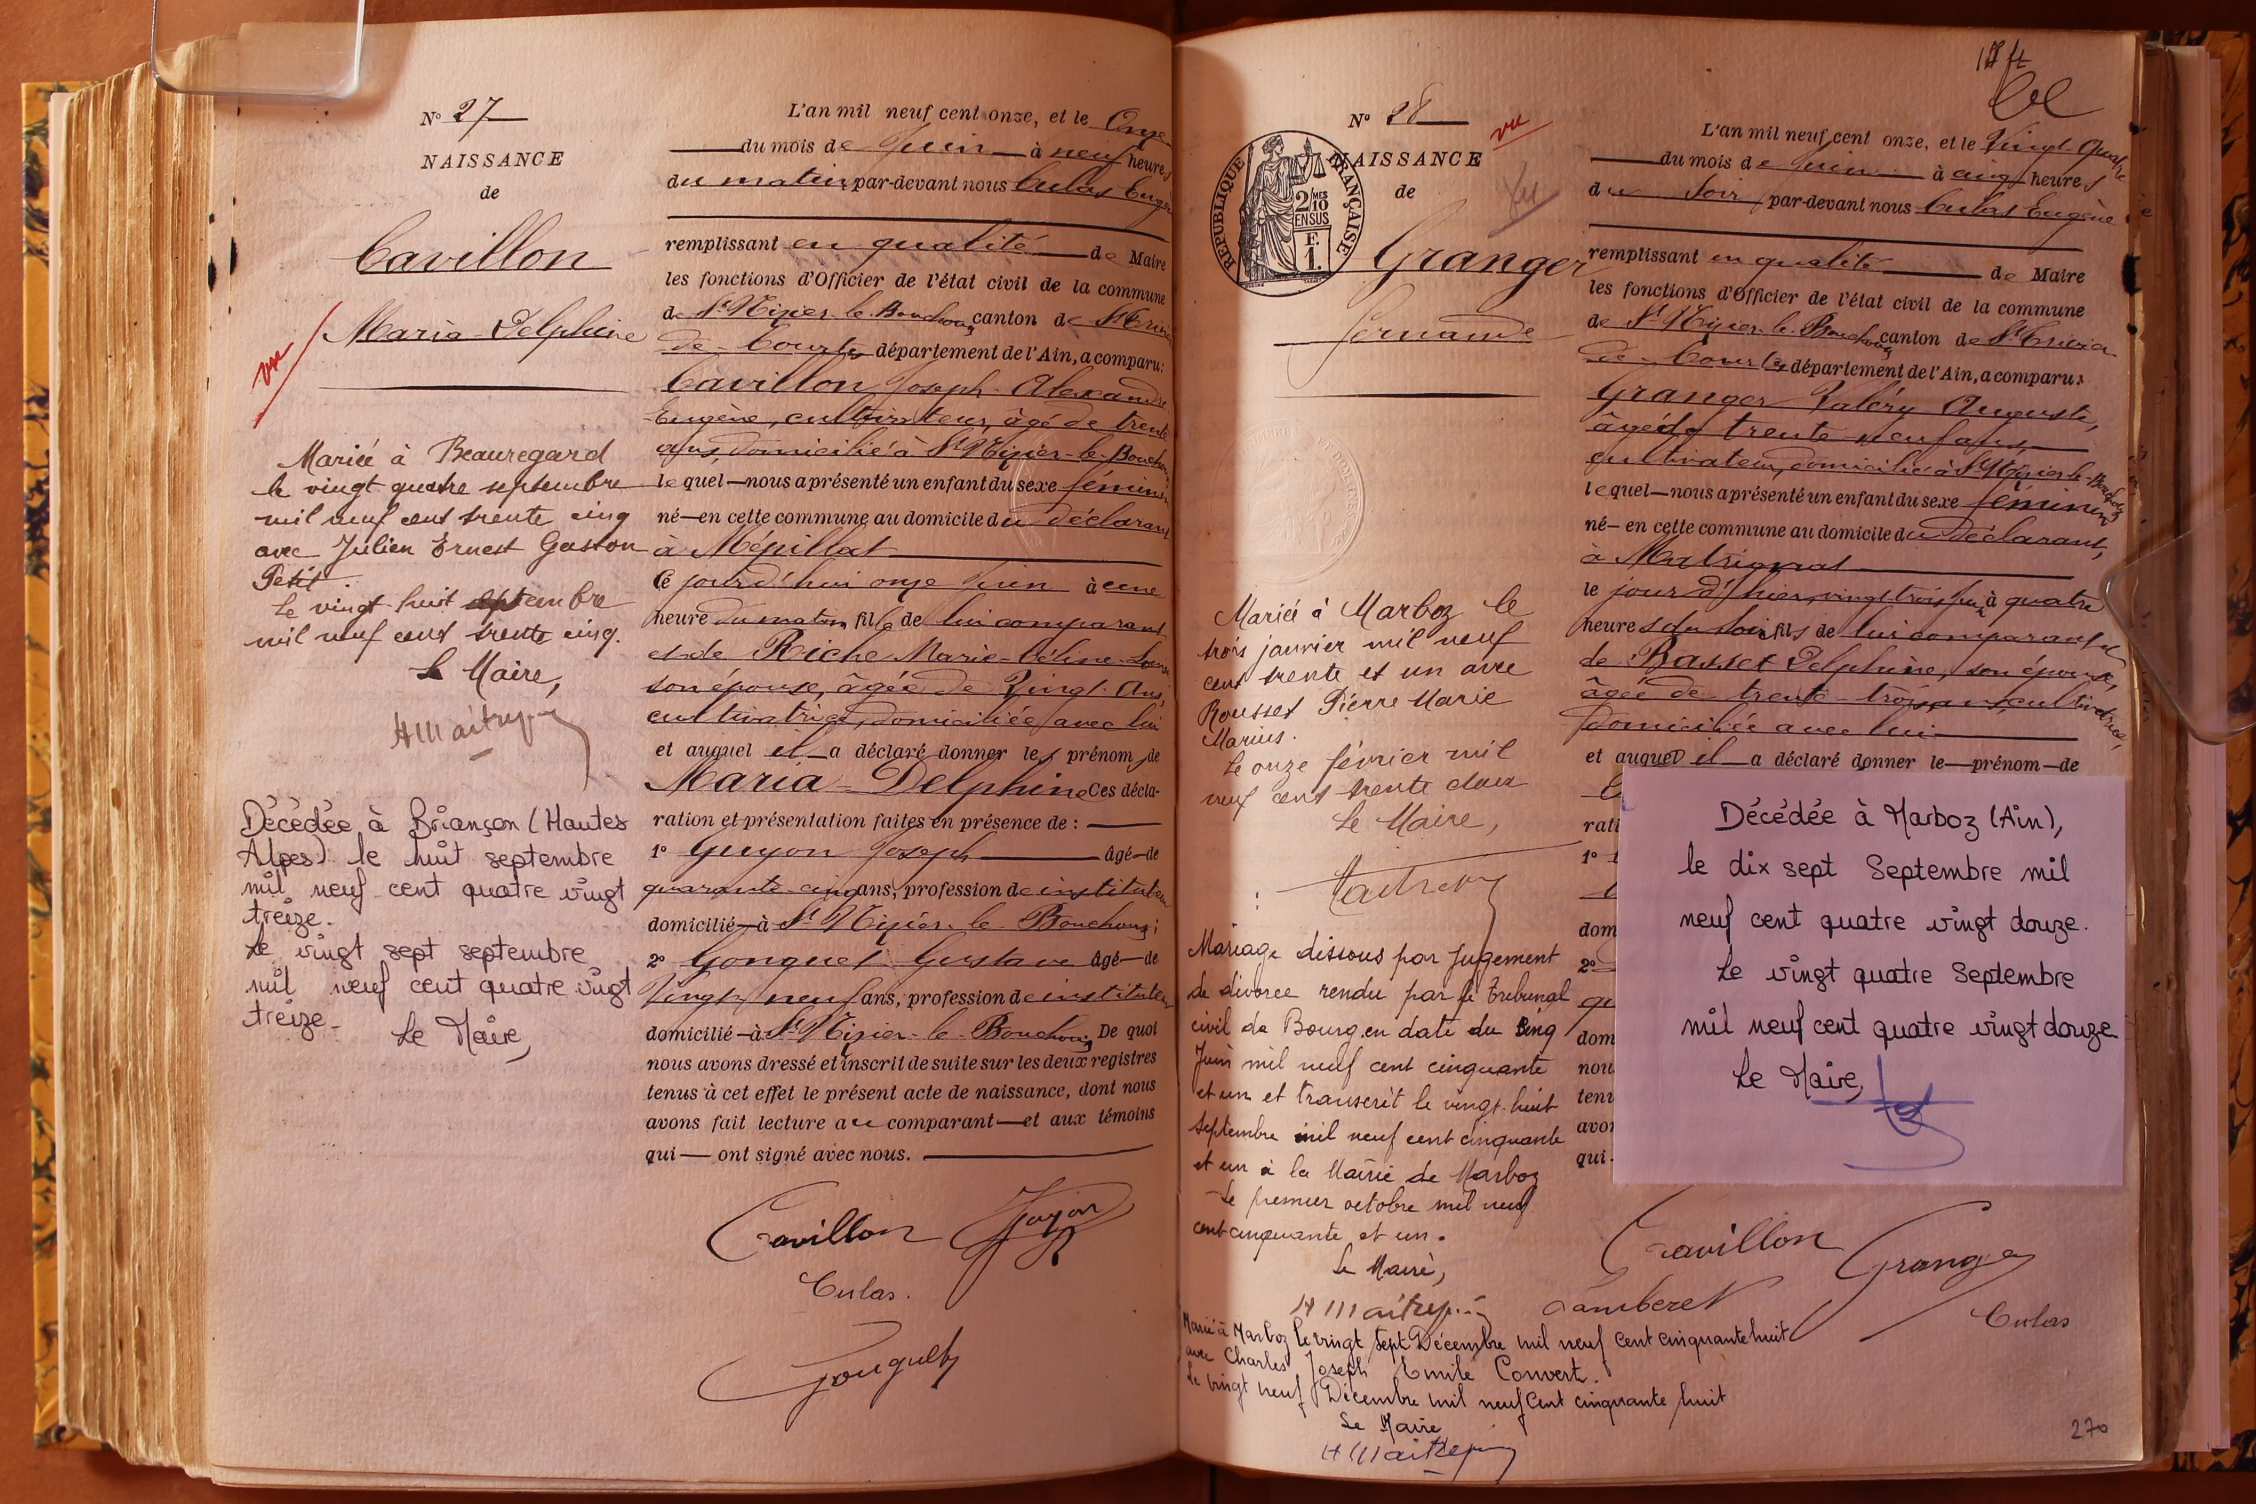 N° 27
NAISSANCE
de
Cavillon
Maria-Delphine
vu
Mariée à Beauregard
le vingt quatre septembre
mil neuf cent trente cinq
avec Julien Ernest Gaston
Petit.
Le vingt huit septembre
mil neuf cent trente cinq.
Le Maire,
Décédée à Briançon (Hautes
Alpes) le huit septembre
mil neuf cent quatre vingt
treize.
Le vingt sept septembre
mil neuf cent quatre vingt
treize.
Le Maire,
L'an mil neuf cent onze, et le Onze
du mois de Juin à neuf heures
du matin par-devant nous Culas Eugène
remplissant en qualité de Maire
les fonctions d'Officier de l'état civil de la commune
de St Nizier-le-Bouchoux canton de St Trivier
de-Courtes département de l'Ain, a comparu:
Cavillon Joseph-Alexandre
Eugène, cultivateur, âgé de trente
ans, domicilié à St Nizier-le-Bouchoux
lequel nous a présenté un enfant du sexe féminin
né en cette commune au domicile du déclarant
à Mépillat
Ce jourd'hui onze Juin à une
heure du matin fille de lui comparant
et de Riche Marie-Céline
son épouse, âgée de Vingt Ans,
cultivatrice, domiciliée avec lui
et auquel il a déclaré donner les prénoms de
Maria-Delphine Ces décla-
ration et présentation faites en présence de :
1° Guyon Joseph âgé de
quarante-cinq ans, profession de instituteur
domicilié à St Nizier-le-Bouchoux;
2° Gonguet Gustave âgé de
Vingt-neuf ans, profession de instituteur
domicilié à St Nizier-le-Bouchoux De quoi
nous avons dressé et inscrit de suite sur les deux registres
tenus à cet effet le présent acte de naissance, dont nous
avons fait lecture au comparant et aux témoins
qui ont signé avec nous.
Cavillon Guyon
Culas.
Gonguet
N° 28
vu
NAISSANCE
de
RÉPUBLIQUE FRANÇAISE
2/10MES
EN SUS
F.
1.
Granger
Fernande
Mariée à Marboz le
trois janvier mil neuf
cent trente et un avec
Rousset Pierre Marie
Marius.
Le onze février mil
neuf cent trente deux
Le Maire,
Mariage dissous par Jugement
de divorce rendu par le Tribunal
civil de Bourg en date du cinq
Juin mil neuf cent cinquante
et un et transcrit le vingt-huit
septembre mil neuf cent cinquante
et un à la Mairie de Marboz
Le premier octobre mil neuf
cent cinquante et un.
Le Maire,
Marié à Marboz le vingt sept Décembre mil neuf cent cinquante huit
avec Charles Joseph Emile Convert.
Le vingt neuf Décembre mil neuf cent cinquante huit
Le Maire
L'an mil neuf cent onze, et le Vingt-Quatre
du mois de Juin à cinq heures
du Soir par-devant nous Culas Eugène
remplissant en qualité de Maire
les fonctions d'Officier de l'état civil de la commune
de St Nizier-le-Bouchoux canton de St Trivier
de-Courtes département de l'Ain, a comparu:
Granger Valéry Auguste,
âgé de trente-neuf ans
cultivateur, domicilié à St Nizier-le-Bouchoux
lequel nous a présenté un enfant du sexe féminin
né en cette commune au domicile du déclarant,
à
le jour d'hier, vingt trois Juin à quatre
heures du soir fils de lui comparant et
de Basset Delphine, son épouse,
âgée de trente-trois ans, cultivatrice,
domiciliée avec lui
et auquel il a déclaré donner le prénom de
rati
1°
dom
2°
qu
dom
nou
tenu
avon
qui
Décédée à Marboz (Ain),
le dix sept Septembre mil
neuf cent quatre vingt douze.
Le vingt quatre Septembre
mil neuf cent quatre vingt douze
Le Maire,
Cavillon Granger
Lamberet
Culas
270